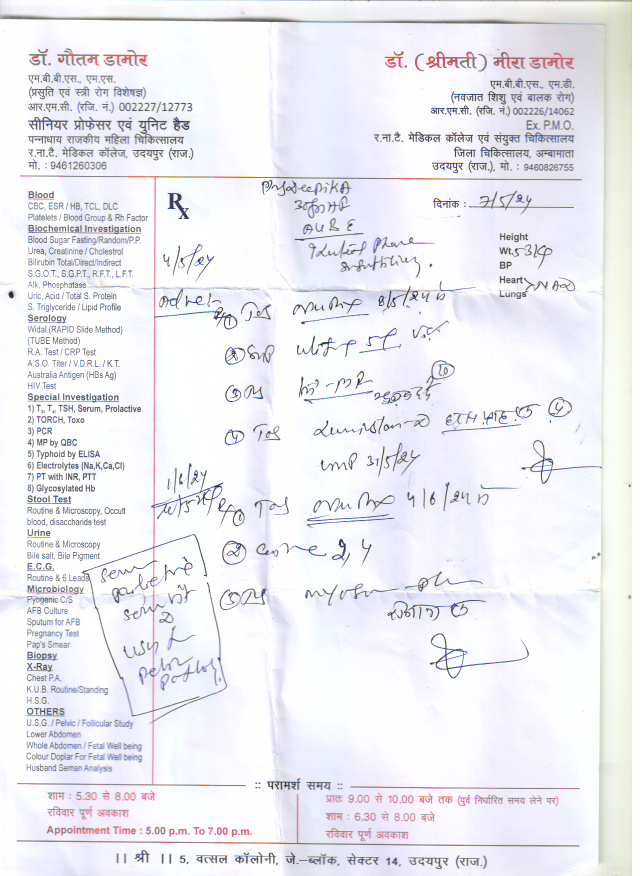 डॉ. गौतम डामोर
एम.बी.बी.एस., एम.एस.
(प्रसुति एवं स्त्री रोग विशेषज्ञ)
आर.एम.सी. (रजि. नं.) 002227/12773
सीनियर प्रोफेसर एवं युनिट हैड
पन्नाधाय राजकीय महिला चिकित्सालय
र.ना.टै. मेडिकल कॉलेज, उदयपुर (राज.)
मो. : 9461260306
डॉ. (श्रीमती) मीरा डामोर
एम.बी.बी.एस., एम.डी.
(नवजात शिशु एवं बालक रोग)
आर.एम.सी. (रजि. नं.) 002226/14062
Ex. P.M.O.
र.ना.टै. मेडिकल कॉलेज एवं संयुक्त चिकित्सालय
जिला चिकित्सालय, अम्बामाता
उदयपुर (राज.), मो. : 9460826755
Blood
CBC, ESR / HB, TCL, DLC
Platelets / Blood Group & Rh Factor
Biochemical Investigation
Blood Sugar Fasting/Random/P.P.
Urea, Creatinine / Cholestrol
Bilirubin Total/Direct/Indirect
S.G.O.T., S.G.P.T., R.F.T., L.F.T.
Alk, Phosphatase
Uric, Acid / Total S. Protein
S. Triglyceride / Lipid Profile
Serology
Widal (RAPID Slide Method)
(TUBE Method)
R.A. Test / CRP Test
A.S.O. Titer / V.D.R.L. / K.T.
Australia Antigen (HBs Ag)
HIV Test
Special Investigation
1) T₃, T₄, TSH, Serum, Prolactive
2) TORCH, Toxo
3) PCR
4) MP by QBC
5) Typhoid by ELISA
6) Electrolytes (Na,K,Ca,Cl)
7) PT with INR, PTT
8) Glycosylated Hb
Stool Test
Routine & Microscopy, Occult
blood, disaccharids test
Urine
Routine & Microscopy
Bile salt, Bile Pigment
E.C.G.
Routine & 6 Leads
Microbiology
Pyogenic C/S
AFB Culture
Sputum for AFB
Pregnancy Test
Pap's Smear
Biopsy
X-Ray
Chest P.A.
K.U.B. Routine/Standing
H.S.G.
OTHERS
U.S.G. / Pelvic / Follicular Study
Lower Abdomen
Whole Abdomen / Fetal Well being
Colour Doplar For Fetal Well being
Husband Seman Analysis
Rx
दिनांक : 7/5/24
Height
Wt. 53 kg
BP
Heart
Lungs NAD
4/5/24
① 8/5/24
②
③ 10
④
LMP 31/5/24
1/6/24
① 4/6/24
② 2, 4
③
:: परामर्श समय ::
शाम : 5.30 से 8.00 बजे
रविवार पूर्ण अवकाश
Appointment Time : 5.00 p.m. To 7.00 p.m.
प्रातः 9.00 से 10.00 बजे तक (पुर्व निर्धारित समय लेने पर)
शाम : 6.30 से 8.00 बजे
रविवार पूर्ण अवकाश
।। श्री ।। 5, वत्सल कॉलोनी, जे.–ब्लॉक, सेक्टर 14, उदयपुर (राज.)